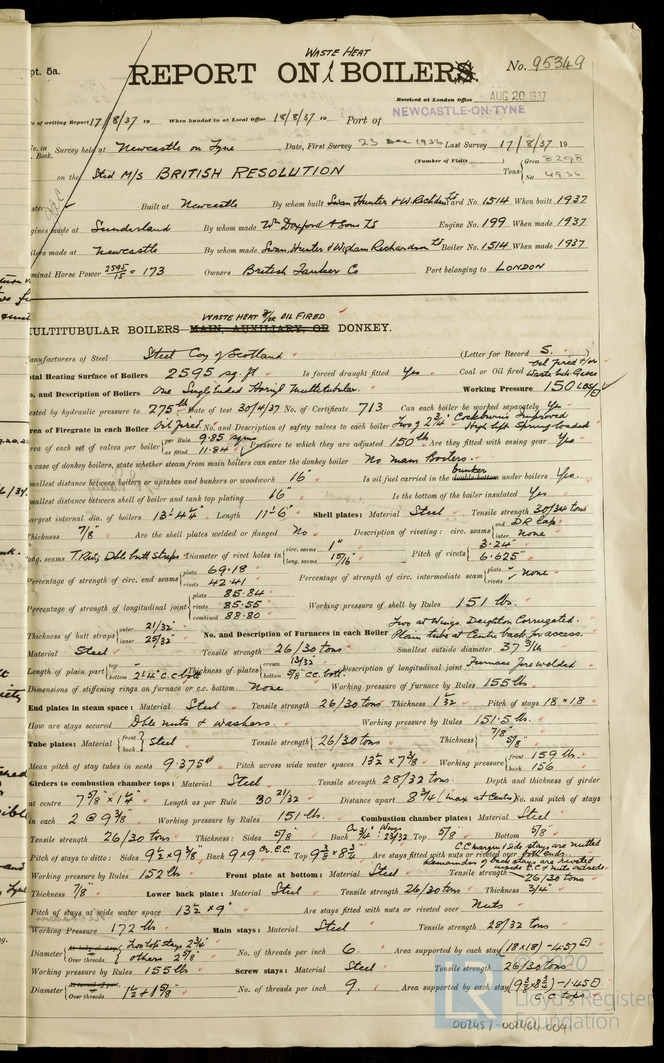 pt. 5a.
WASTE HEAT
REPORT ON BOILERS.
No. 95349
Received at London Office AUG 20 1937
NEWCASTLE-ON-TYNE
of writing Report 17/8/37 19 When handed in at Local Office 18/8/37 Port of
No. in Book. Survey held at Newcastle on Tyne Date, First Survey 23 Dec 1936 Last Survey 17/8/37 19
(Number of Visits)
on the Steel M/S BRITISH RESOLUTION Tons { Gross 8298 Net 4936
Built at Newcastle By whom built Swan Hunter & W Richardson Ltd Yard No. 1514 When built 1937
gines made at Sunderland By whom made Wm Doxford & Sons Ld Engine No. 199 When made 1937
ilers made at Newcastle By whom made Swan, Hunter & Wigham Richardson Ld Boiler No. 1514 When made 1937
minal Horse Power 2595/15 = 173 Owners British Tanker Co Port belonging to LONDON
WASTE HEAT &/or OIL FIRED
MULTITUBULAR BOILERS MAIN, AUXILIARY, OR DONKEY.
anufacturers of Steel Steel Coy of Scotland (Letter for Record S.
tal Heating Surface of Boilers 2595 sq. ft Is forced draught fitted Yes Coal or Oil fired Oil fired &/or Waste heat gases
o. and Description of Boilers One Single Ended Horizl Multitubular. Working Pressure 150 LBS/□"
ested by hydraulic pressure to 275 lb Date of test 30/4/37 No. of Certificate 713 Can each boiler be worked separately Yes
Area of Firegrate in each Boiler Oil fired. No. and Description of safety valves to each boiler Two of 2 3/4" Cockburn's Improved High lift Spring loaded
rea of each set of valves per boiler { per Rule 9.85 as fitted 11.84 Pressure to which they are adjusted 150 lb Are they fitted with easing gear Yes
n case of donkey boilers, state whether steam from main boilers can enter the donkey boiler No main Boilers.
mallest distance between boilers or uptakes and bunkers or woodwork 16" Is oil fuel carried in the double bottom bunker under boilers Yes.
mallest distance between shell of boiler and tank top plating 16" Is the bottom of the boiler insulated Yes
argest internal dia. of boilers 13'-4 1/4" Length 11'-6" Shell plates: Material Steel Tensile strength 30/34 tons
Thickness 7/8" Are the shell plates welded or flanged No Description of riveting: circ. seams { end D R Lap. inter. None
ong. seams T. Riv, Dble butt straps Diameter of rivet holes in { circ. seams 1" long. seams 15/16" Pitch of rivets { 3.24" 6.625"
Percentage of strength of circ. end seams { plate 69.18 rivets 42.41 Percentage of strength of circ. intermediate seam { plate rivets None
Percentage of strength of longitudinal joint { plate 85.84 rivets 85.55 combined 88.80 Working pressure of shell by Rules 151 lbs.
Thickness of butt straps { outer 21/32" inner 25/32" No. and Description of Furnaces in each Boiler Two at Wings. Deighton Corrugated. Plain tube at Centre back for access.
Material Steel Tensile strength 26/30 tons Smallest outside diameter 37 3/16
Length of plain part { top bottom 2'1 1/4" c.c. bott Thickness of plates { crown 13/32 bottom 5/8" cc bott. Description of longitudinal joint Furnaces fire welded
Dimensions of stiffening rings on furnace or c.c. bottom None Working pressure of furnace by Rules 155 lb
End plates in steam space: Material Steel Tensile strength 26/30 tons Thickness 1 1/32 Pitch of stays 18 x 18
How are stays secured Dble nuts & washers. Working pressure by Rules 151.5 lbs.
Tube plates: Material { front back Steel Tensile strength { 26/30 tons Thickness { 7/8" 5/8"
Mean pitch of stay tubes in nests 9.375" Pitch across wide water spaces 13 1/2 x 7 3/8 Working pressure { front 159 lbs. back 156
Girders to combustion chamber tops: Material Steel Tensile strength 28/32 tons Depth and thickness of girder
at centre 7 5/8" x 1 1/4" Length as per Rule 30 21/32 Distance apart 8 3/4 (max at Centre) No. and pitch of stays
in each 2 @ 9 3/8" Working pressure by Rules 151 lb. Combustion chamber plates: Material Steel
Tensile strength 26/30 tons Thickness: Sides 5/8" Back Cr. 3/4" Wings 23/32 Top 5/8" Bottom 5/8"
Pitch of stays to ditto: Sides 9 1/2 x 9 3/8" Back 9 x 9 Cr. C.C. Top 9 3/8 x 8 3/4 Are stays fitted with nuts or riveted over C.C margin & side stays are nutted both ends. Remainder of back stays are riveted inside C.C & nuts outside
Working pressure by Rules 152 lb Front plate at bottom: Material Steel Tensile strength 26/30 tons
Thickness 7/8" Lower back plate: Material Steel Tensile strength 26/30 tons Thickness 3/4"
Pitch of stays at wide water space 13 1/2 x 9" Are stays fitted with nuts or riveted over Nuts
Working Pressure 172 lb Main stays: Material Steel Tensile strength 28/32 tons
Diameter { Two top stays 2 3/4" Over threads others 2 5/8" No. of threads per inch 6. Area supported by each stay (18x18) - 4.57 □"
Working pressure by Rules 155 lb Screw stays: Material Steel Tensile strength 26/30 tons
Diameter { Over threads 1 1/2 + 1 5/8" No. of threads per inch 9. Area supported by each stay (9 3/8 x 8 3/4) - 1.45 □"
C C tops
© 2020
LR
Lloyd's Register
Foundation
002457-002464-0041